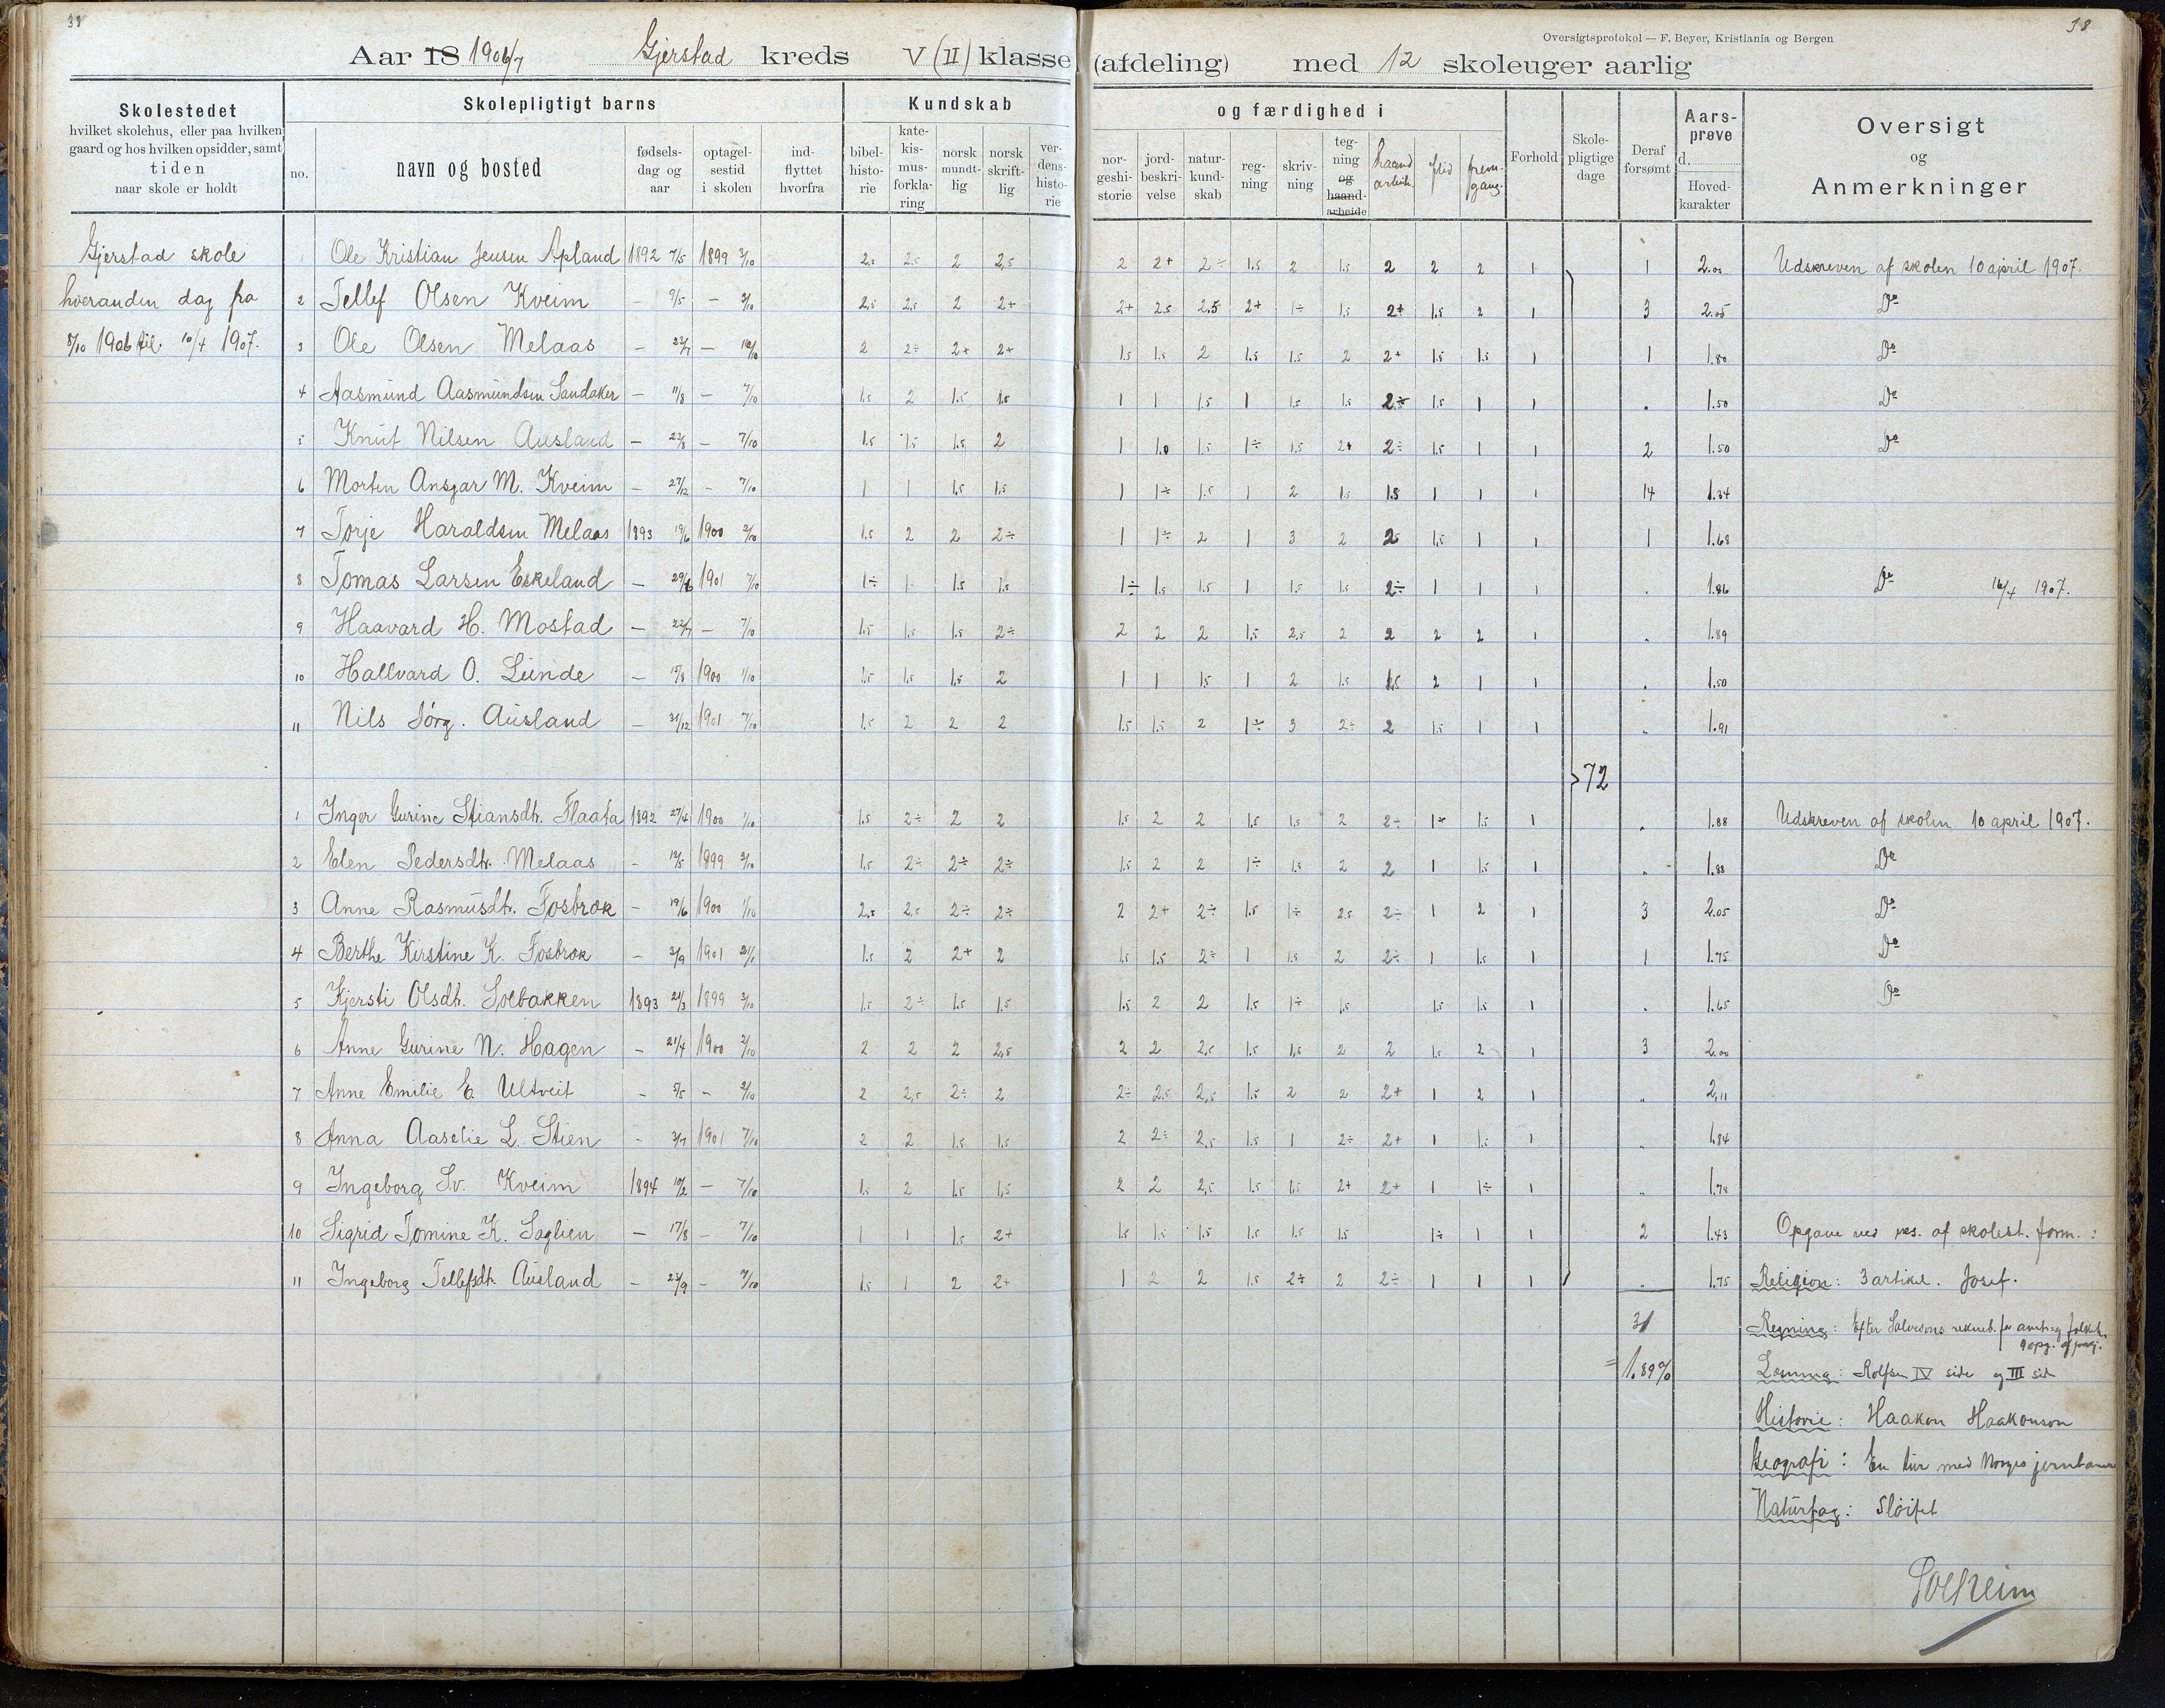 38
Aar 18 1906/7 Gjerstad kreds V (II) klasse (afdeling) med 12 skoleuger aarlig
Oversigtsprotokol — F. Beyer, Kristiania og Bergen
38
Skolestedet
hvilket skolehus, eller paa hvilken
gaard og hos hvilken opsidder, samt
tiden
naar skole er holdt
Skolepligtigt barns
no.
navn og bosted
fødsels-
dag og
aar
optagel-
sestid
i skolen
ind-
flyttet
hvorfra
Kundskab og færdighed i
bibel-
histo-
rie
kate-
kis-
mus-
forkla-
ring
norsk
mundt-
lig
norsk
skrift-
lig
ver-
dens-
histo-
rie
nor-
geshi-
storie
jord-
beskri-
velse
natur-
kund-
skab
reg-
ning
skriv-
ning
teg-
ning
og
haand-
arbeide
haand
arbeide
flid
frem-
gang
Forhold
Skole-
pligtige
dage
Deraf
forsømt
Aars-
prøve
d.
Hoved-
karakter
Oversigt
og
Anmerkninger
Gjerstad skole
hveranden dag fra
8/10 1906 til 10/4 1907.
1 Ole Kristian Jensen Apland 1892 7/5 1899 3/10 2.5 2.5 2 2,5 2 2+ 2÷ 1.5 2 1.5 2 2 2 1 1 2.00 Udskreven af skolen 10 april 1907.
2 Tellef Olsen Kveim — 9/5 — 3/10 2.5 2.5 2 2+ 2+ 2.5 2.5 2+ 1÷ 1.5 2+ 1.5 2 1 3 2.05 Do
3 Ole Olsen Melaas — 23/7 — 16/10 2 2÷ 2+ 2+ 1.5 1.5 2 1.5 1.5 2 2+ 1.5 1.5 1 1 1.80 Do
4 Aasmund Aasmundsen Sandaker — 11/8 — 7/10 1.5 2 1.5 1.5 1 1 1.5 1 1.5 1.5 2÷ 1.5 1 1 . 1.50 Do
5 Knut Nilsen Ausland — 23/8 — 7/10 1.5 1.5 1.5 2 1 1.0 1.5 1÷ 1.5 2+ 2÷ 1.5 1 1 2 1.50 Do
6 Morten Ansgar M. Kveim — 27/12 — 7/10 1 1 1.5 1.5 1 1÷ 1.5 1 2 1.5 1.5 1 1 1 14 1.34
7 Torje Haraldsen Melaas 1893 19/6 1900 2/10 1.5 2 2 2÷ 1 1÷ 2 1 3 2 2 1.5 1 1 1 1.68
8 Tomas Larsen Eskeland — 29/6 1901 7/10 1÷ 1 1.5 1.5 1÷ 1.5 1.5 1 1.5 1.5 2÷ 1 1 1 . 1.86 Do 16/4 1907.
9 Haavard H. Mostad — 22/7 — 7/10 1.5 1.5 1.5 2÷ 2 2 2 1.5 2.5 2 2 2 2 1 . 1.89
10 Hallvard O. Lunde — 15/8 1900 1/10 1.5 1.5 1.5 2 1 1 1.5 1 2 1.5 1.5 2 1 1 . 1.50
11 Nils Jörg. Ausland — 31/12 1901 7/10 1.5 2 2 2 1.5 1.5 2 1÷ 3 2÷ 2 1.5 1 1 . 1.91
72
1 Inger Gurine Stiansdh. Flaata 1892 27/4 1900 1/10 1.5 2÷ 2 2 1.5 2 2 1.5 1.5 2 2÷ 1÷ 1.5 1 . 1.88 Udskreven af skolen 10 april 1907.
2 Elen Pedersdtr. Melaas — 12/5 1899 3/10 1.5 2÷ 2÷ 2÷ 1.5 2 2 1÷ 1.5 2 2 1 1.5 1 . 1.88 Do
3 Anne Rasmusdt. Fosbrok — 19/6 1900 1/10 2.5 2.5 2÷ 2÷ 2 2+ 2÷ 1.5 1÷ 2.5 2÷ 1 2 1 3 2.05 Do
4 Berthe Kirstine K. Fosbrok — 3/9 1901 21/1 1.5 2 2+ 2 1.5 1.5 2÷ 1 1.5 2 2÷ 1 1.5 1 1 1.75 Do
5 Kjersti Olsdt. Solbakken 1893 21/3 1899 3/10 1.5 2÷ 1.5 1.5 1.5 2 2 1.5 1÷ 1.5 1.5 1.5 1 . 1.65 Do
6 Anne Gurine N. Hagen — 21/4 1900 2/10 2 2 2 2,5 2 2 2.5 1.5 1,5 2 2 1.5 2 1 3 2.00
7 Anne Emilie E. Ultveit — 5/5 — 2/10 2 2,5 2÷ 2 2÷ 2.5 2,5 1.5 2 2 2+ 1 2 1 „ 2,11
8 Anna Aaselie L. Stien — 3/7 1901 7/10 2 2 1.5 1.5 2 2÷ 2,5 1.5 1 2÷ 2+ 1 1.5 1 „ 1.84
9 Ingeborg Sv. Kveim 1894 10/2 — 7/10 1.5 2 1.5 1,5 2 2 2,5 1.5 1.5 2+ 2+ 1 1÷ 1 „ 1.78
10 Sigrid Tomine K. Saglien — 17/8 — 7/10 1 1 1.5 2+ 1.5 1.5 1.5 1.5 1.5 1.5 1÷ 1 1 2 1.43 Opgave ved af skolest. form. :
11 Ingeborg Tellefsdt. Ausland — 23/9 — 7/10 1.5 1 2 2+ 1 2 2 1.5 2÷ 2 2÷ 1 1 1 „ 1.75 Religion: 3 artikel. Josef.
31 Regning: Efter Salvesons rekneb. for og folkh.
= 1.89% Læsning: Rolfsen IV side og III sid
Historie: Haakon Haakonson
Geografi: En tur med Norges jernbaner
Naturfag: Sløifet
Solheim